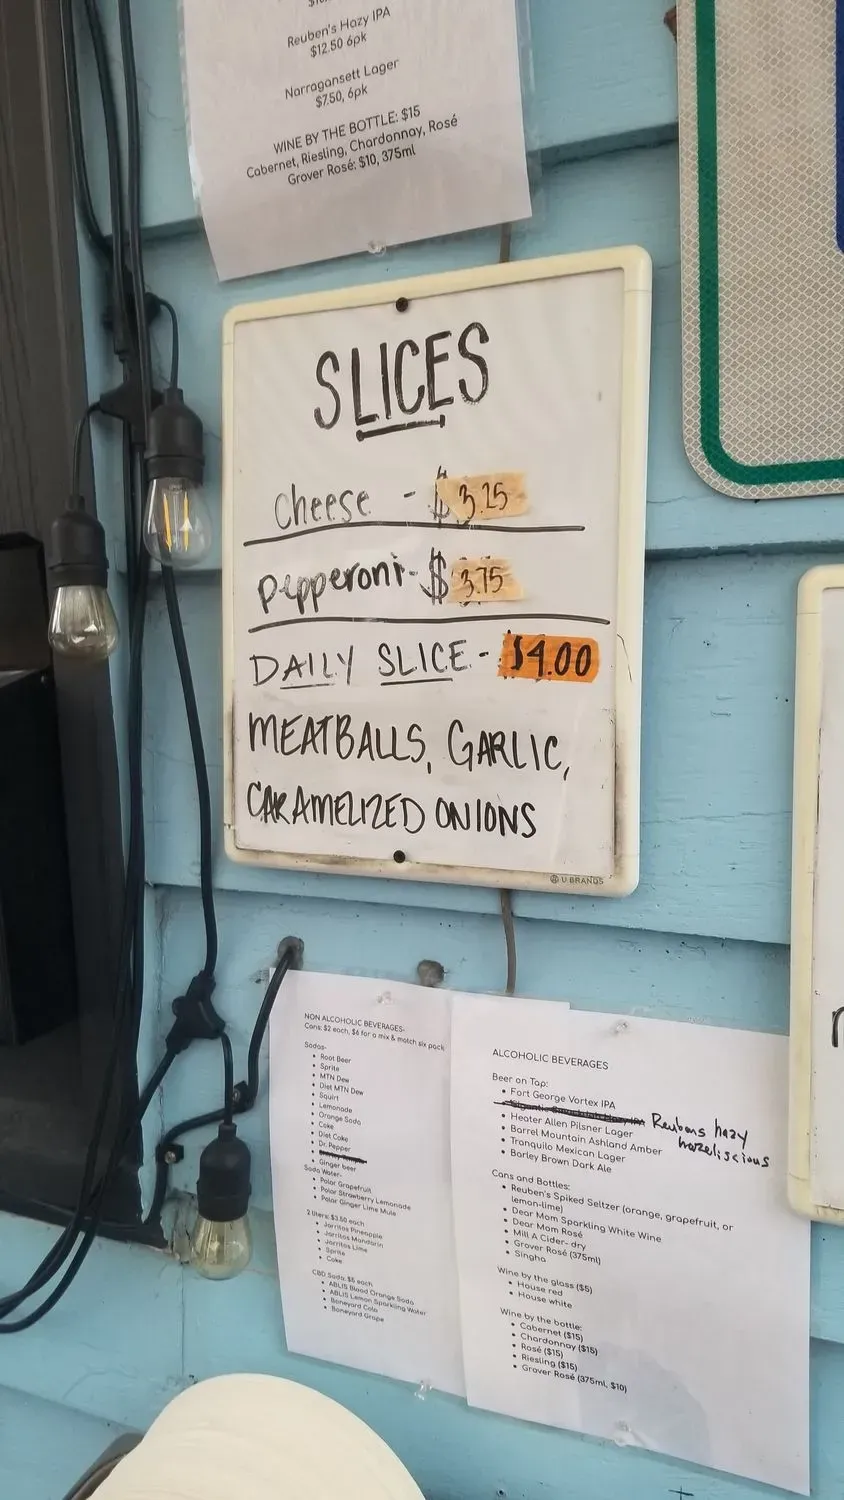 Reuben's Hazy IPA
$12.50 6pk
Narragansett Lager
$7.50, 6pk
WINE BY THE BOTTLE: $15
Cabernet, Riesling, Chardonnay, Rosé
Grover Rosé: $10, 375ml
SLICES
Cheese - $3.25
Pepperoni - $3.75
DAILY SLICE - $4.00
MEATBALLS, GARLIC,
CARAMELIZED ONIONS
U BRANDS
NON ALCOHOLIC BEVERAGES-
Cans: $2 each, $6 for a mix & match six pack
Sodas-
• Root Beer
• Sprite
• MTN Dew
• Diet MTN Dew
• Squirt
• Lemonade
• Orange Soda
• Coke
• Diet Coke
• Dr. Pepper
• Ginger beer
Soda Water-
• Polar Grapefruit
• Polar Strawberry Lemonade
• Polar Ginger Lime Mule
2 liters: $3.50 each
• Jarritos Pineapple
• Jarritos Mandarin
• Jarritos Lime
• Sprite
• Coke
CBD Soda: $5 each
• ABLIS Blood Orange Soda
• ABLIS Lemon Sparkling Water
• Boneyard Cola
• Boneyard Grape
ALCOHOLIC BEVERAGES
Beer on Tap:
• Fort George Vortex IPA
Reubens hazy
hazelicious
• Heater Allen Pilsner Lager
• Barrel Mountain Ashland Amber
• Tranquilo Mexican Lager
• Barley Brown Dark Ale
Cans and Bottles:
• Reuben's Spiked Seltzer (orange, grapefruit, or
lemon-lime)
• Dear Mom Sparkling White Wine
• Dear Mom Rosé
• Mill A Cider- dry
• Grover Rosé (375ml)
• Singha
Wine by the glass ($5)
• House red
• House white
Wine by the bottle:
• Cabernet ($15)
• Chardonnay ($15)
• Rosé ($15)
• Riesling ($15)
• Grover Rosé (375ml, $10)